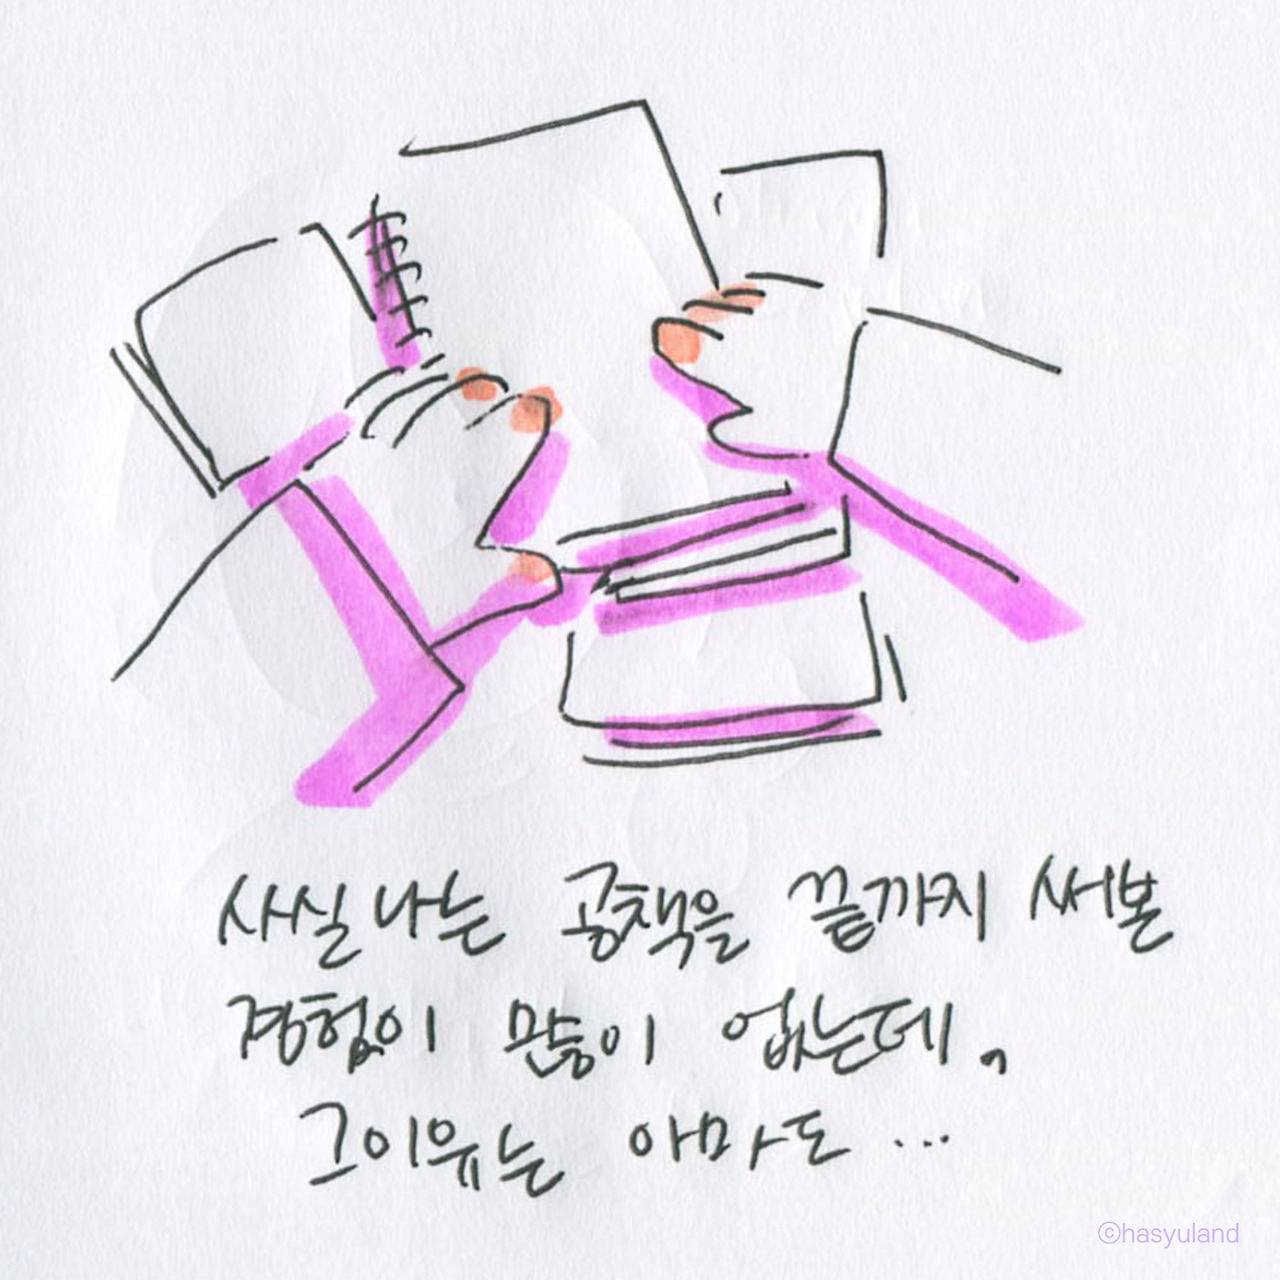 사실 나는 공책을 끝까지 써본
경험이 많이 없는데,
그 이유는 아마도 ...
©hasyuland